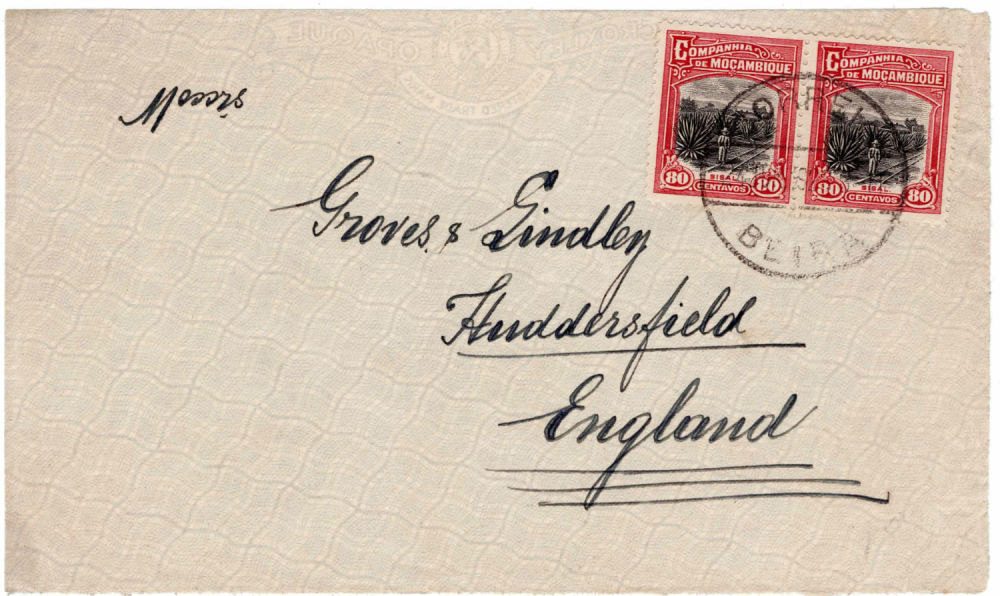 COMPANHIA
DE MOÇAMBIQUE
SISAL
80 CENTAVOS 80
COMPANHIA
DE MOÇAMBIQUE
SISAL
80 CENTAVOS 80
BEIRA
Messrs
Groves & Lindley
Huddersfield
England